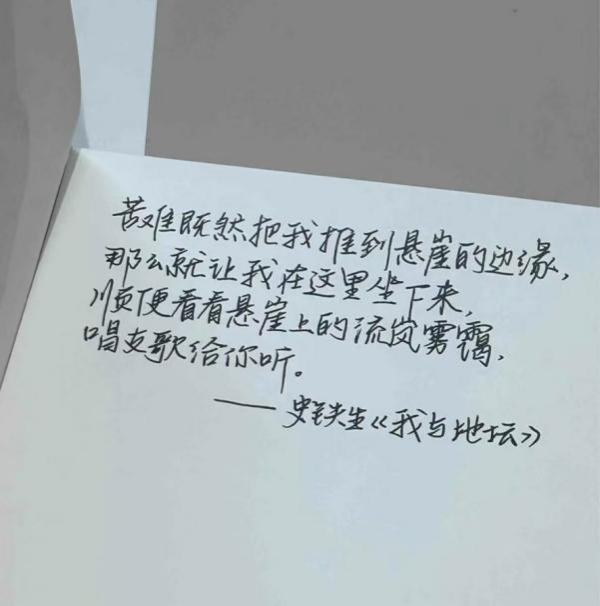 苦难既然把我推到悬崖的边缘，
那么就让我在这里坐下来，
顺便看看悬崖上的流岚雾霭，
唱支歌给你听。
—— 史铁生《我与地坛》